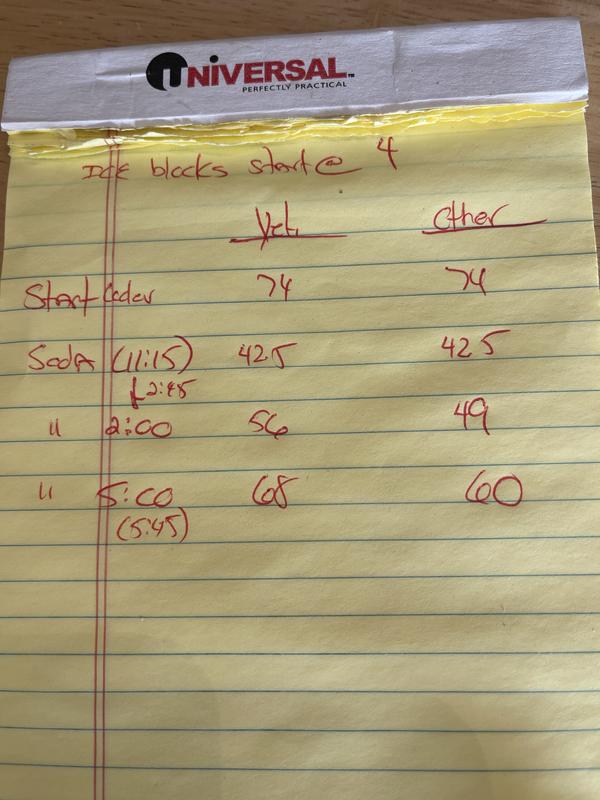 UNIVERSAL™
PERFECTLY PRACTICAL
ICE blocks start @ 4
Yeti Other
Start Cooler 74 74
Soda (11:15) 42.5 42.5
2:45
" 2:00 56 49
" 5:00 68 60
(5:45)